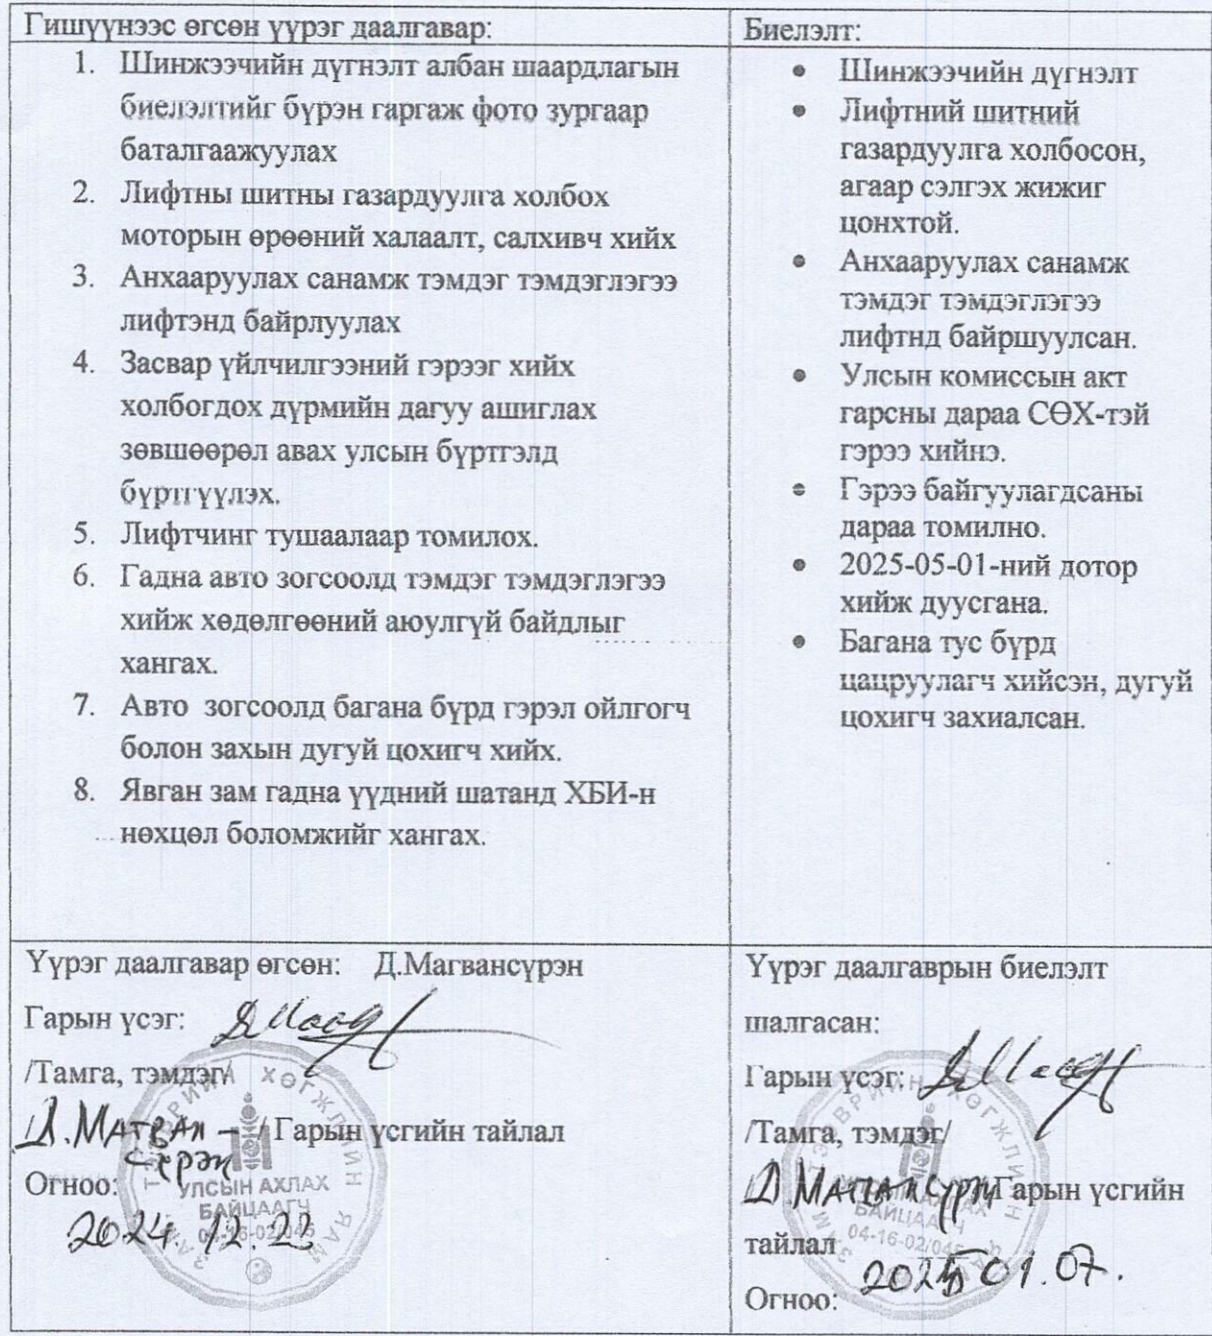 Гишүүнээс өгсөн үүрэг даалгавар:
1. Шинжээчийн дүгнэлт албан шаардлагын
биелэлтийг бүрэн гаргаж фото зургаар
баталгаажуулах
2. Лифтны шитны газардуулга холбох
моторын өрөөний халаалт, салхивч хийх
3. Анхааруулах санамж тэмдэг тэмдэглэгээ
лифтэнд байрлуулах
4. Засвар үйлчилгээний гэрээг хийх
холбогдох дүрмийн дагуу ашиглах
зөвшөөрөл авах улсын бүртгэлд
бүртгүүлэх.
5. Лифтчинг тушаалаар томилох.
6. Гадна авто зогсоолд тэмдэг тэмдэглэгээ
хийж хөдөлгөөний аюулгүй байдлыг
хангах.
7. Авто зогсоолд багана бүрд гэрэл ойлгогч
болон захын дугуй цохигч хийх.
8. Явган зам гадна үүдний шатанд ХБИ-н
нөхцөл боломжийг хангах.
Биелэлт:
• Шинжээчийн дүгнэлт
• Лифтний шитний
газардуулга холбосон,
агаар сэлгэх жижиг
цонхтой.
• Анхааруулах санамж
тэмдэг тэмдэглэгээ
лифтнд байршуулсан.
• Улсын комиссын акт
гарсны дараа СӨХ-тэй
гэрээ хийнэ.
• Гэрээ байгуулагдсаны
дараа томилно.
• 2025-05-01-ний дотор
хийж дуусгана.
• Багана тус бүрд
цацруулагч хийсэн, дугуй
цохигч захиалсан.
Үүрэг даалгавар өгсөн: Д.Магвансүрэн
Гарын үсэг:
/Тамга, тэмдэг/
Д.Магван-/ Гарын үсгийн тайлал
сүрэн
Огноо:
2024.12.23
ЗАМ ТЭЭВРИЙН ХӨГЖЛИЙН ЯАМ
УЛСЫН АХЛАХ
БАЙЦААГЧ
04-16-02/045
Үүрэг даалгаврын биелэлт
шалгасан:
Гарын үсэг:
/Тамга, тэмдэг/
Д.Магвансүрэн Гарын үсгийн
тайлал
Огноо: 2025 01.07.
ЗАМ ТЭЭВРИЙН ХӨГЖЛИЙН ЯАМ
УЛСЫН АХЛАХ
БАЙЦААГЧ
04-16-02/045